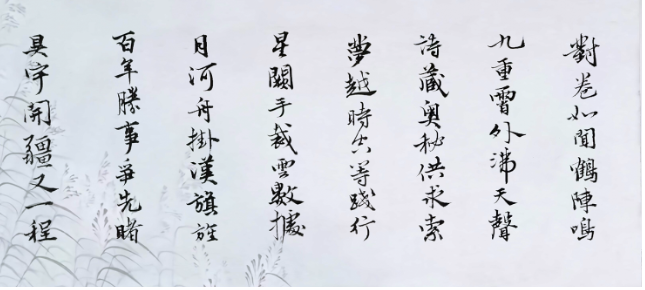 對卷如聞鶴陣鳴
九重霄外沸天聲
詩藏奧秘供求索
夢越時空等踐行
星闕手裁雲數據
月河舟掛漢旗旌
百年勝事爭先睹
具宇開疆又一程